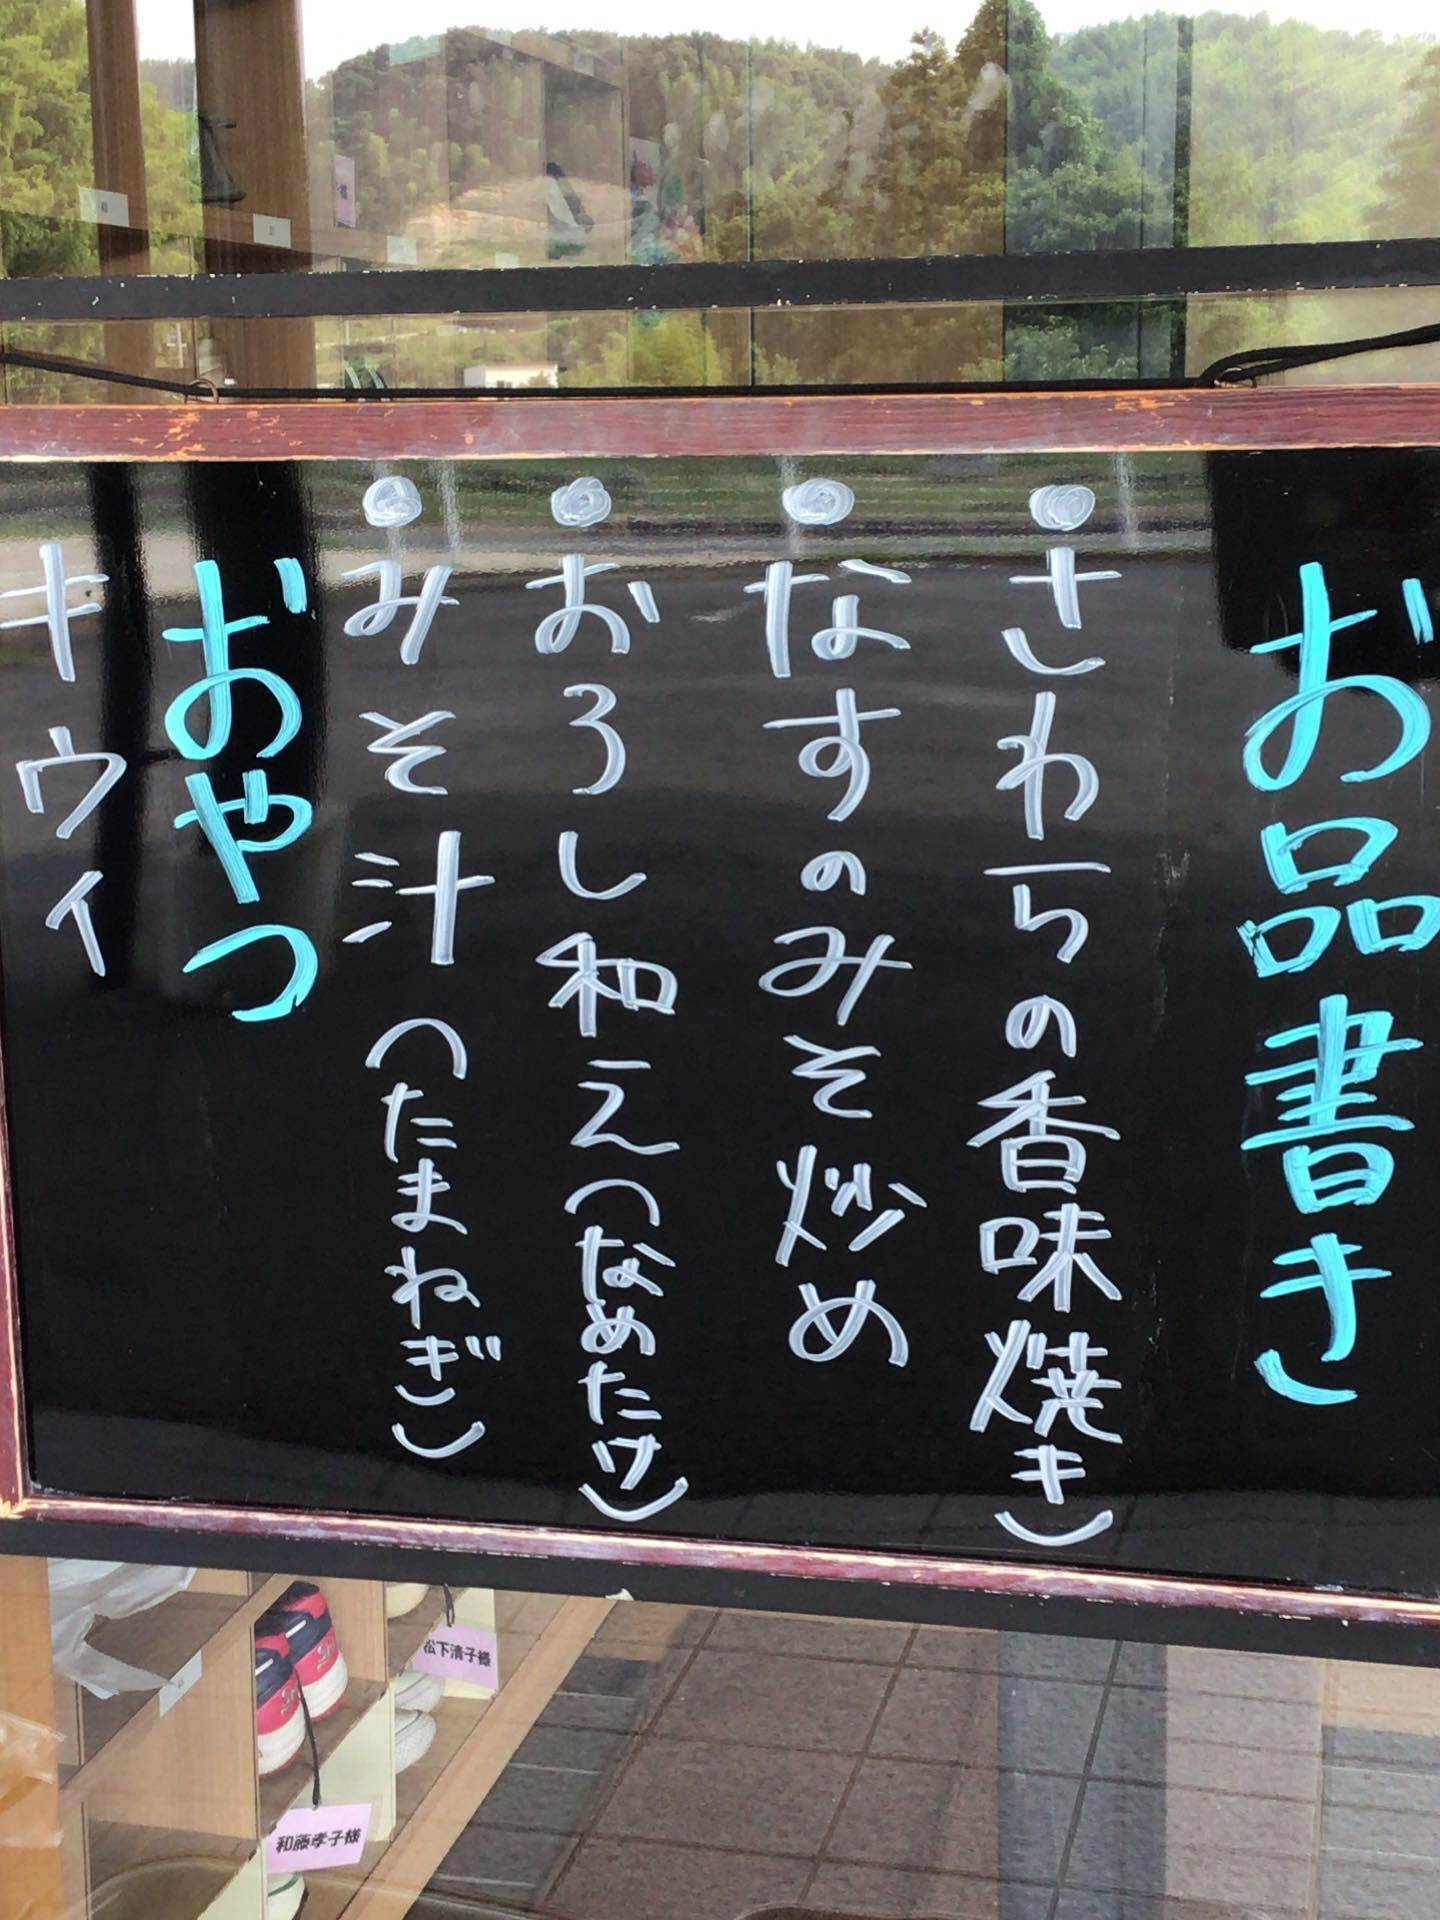 お品書き
●さわらの香味焼き)
●なすのみそ炒め
●おろし和え(なめたけ)
●みそ汁(たまねぎ)
おやつ
キウィ
松下清子様
和藤孝子様